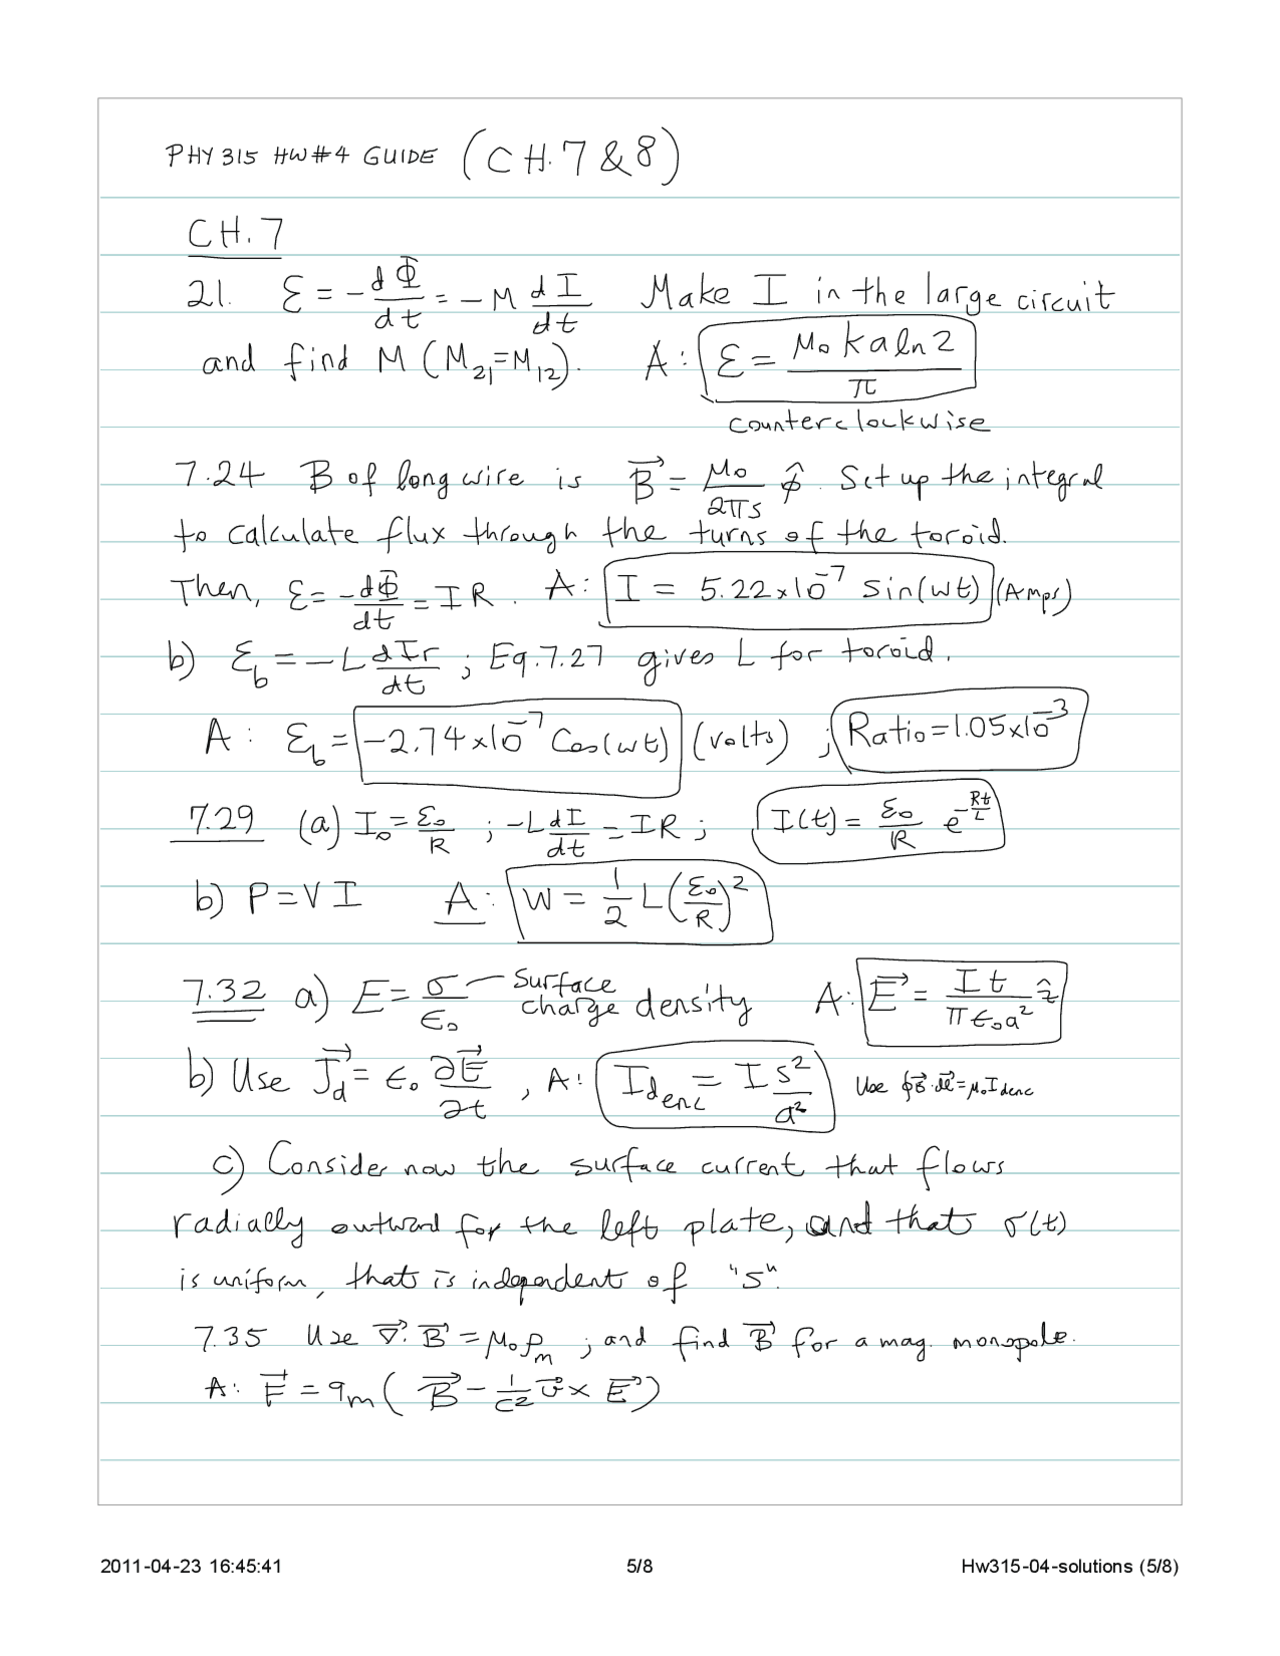 PHY 315 HW#4 GUIDE (CH. 7 & 8)
CH. 7
21. Ɛ = -dΦ/dt = -M dI/dt Make I in the large circuit
and find M (M₂₁=M₁₂). A: Ɛ = μ₀ k a ln 2 / π
counterclockwise
7.24 B of long wire is B⃗ = μ₀/2πs φ̂. Set up the integral
to calculate flux through the turns of the toroid.
Then, Ɛ = -dΦ/dt = IR. A: I = 5.22×10⁻⁷ sin(wt) (Amps)
b) Ɛb = -L dIr/dt ; Eq. 7.27 gives L for toroid.
A: Ɛb = -2.74×10⁻⁷ Cos(wt) (volts) ; Ratio=1.05×10⁻³
7.29 (a) I₀ = Ɛ₀/R ; -L dI/dt = IR ; I(t) = Ɛ₀/R e^(-Rt/L)
b) P=VI A: W = 1/2 L(Ɛ₀/R)²
7.32 a) E = σ/ϵ₀ — surface charge density A: E⃗ = It/πϵ₀a² ẑ
b) Use J⃗d = ϵ₀ ∂E⃗/∂t , A: Idenc = I s²/a² Use ∮B⃗·dl⃗=μ₀Idenc
c) Consider now the surface current that flows
radially outward for the left plate, and that σ(t)
is uniform, that is independent of "s".
7.35 Use ∇⃗·B⃗ = μ₀ρm ; and find B⃗ for a mag. monopole.
A: F⃗ = qm(B⃗ - 1/c² v⃗ × E⃗)
2011-04-23 16:45:41 5/8 Hw315-04-solutions (5/8)